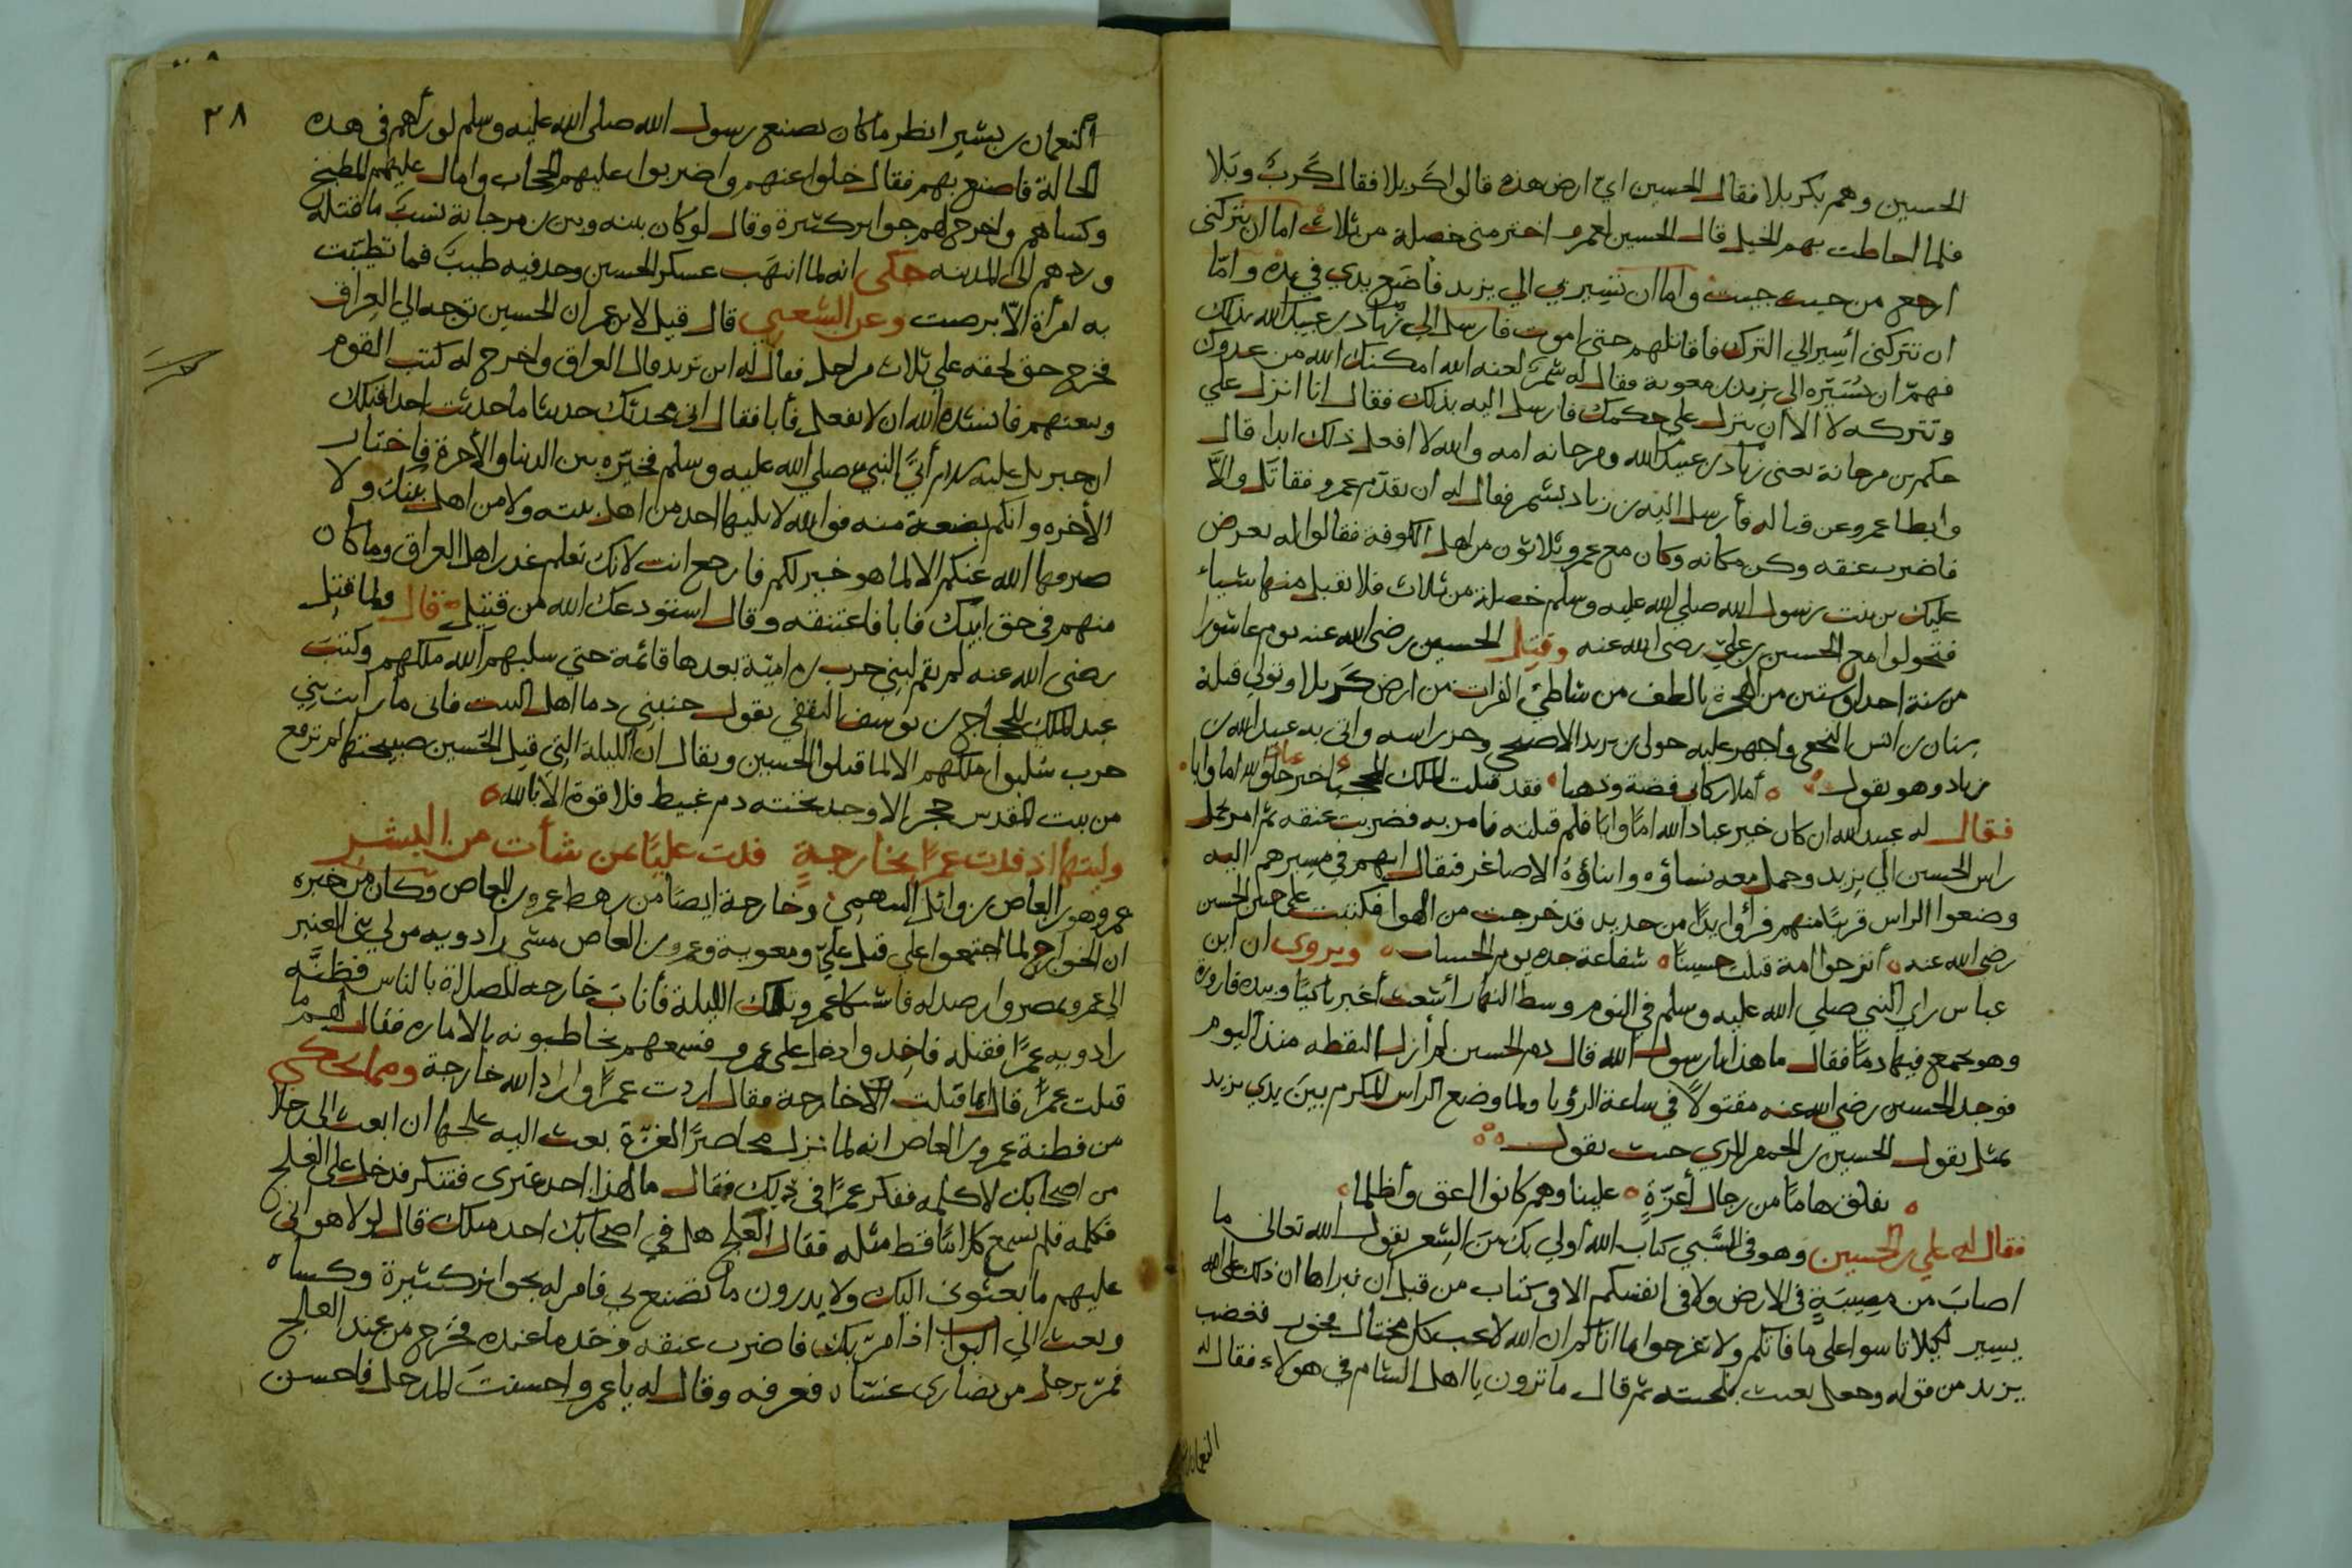 الحسين وهم بكربلا فقال الحسين اي ارض هذه قالوا كربلا فقال كرب وبلا
فلما احاطت بهم الخيل قال الحسين لعمرو اختر مني خصلة من ثلاث اما ان تتركني
ارجع من حيث جيت واما ان تسيرني الي يزيد فأضع يدي في يده واما
ان تتركني أسير الي الترك فأقاتلهم حتى اموت فارسل الي زياد بن عبيد الله بذلك
فهم ان يسيره الي يزيد بن معوية فقال له شمر لعنه الله امكنك الله من عدوك
وتتركه لا الا ان ينزل على حكمك فارسل اليه بذلك فقال انا انزل علي
حكم بن مرجانة يعني زياد بن عبيد الله ومرجانه امه والله لا افعل ذلك ابدا قال
وابطا عمرو عن قتاله فأرسل اليه بن زياد بشمر فقال له ان تقدم عمرو فقاتل والا
فاضرب عنقه وكن مكانه وكان مع عمرو ثلاثون من اهل الكوفة فقالوا له يعرض
عليك بن بنت رسول الله صلي الله عليه وسلم خصلة من ثلاث فلا تقبل منها شياء
فتحولوا مع الحسين بن علي رضي الله عنه وقتل الحسين رضي الله عنه يوم عاشورا
من سنة احدا وستين من الهجرة بالطف من شاطئ الفرات من ارض كربلا وتولي قتله
سنان بن انس النخعي واجهز عليه حولي بن يزيد الاصبحي وحز راسه واتي به عبيد الله بن
زياد وهو يقول أملا ركابي فضة وذهبا فقد قتلت الملك المحجبا خير عباد الله اما وابا
فقال له عبيد الله ان كان خير عباد الله اما وابا فلم قتلته فامر به فضربت عنقه ثم امر بحمل
راس الحسين الي يزيد وحمل معه نساؤه وابناؤه الاصاغر فيقال انهم في مسيرهم اليه
وضعوا الراس قريبا منهم فرأوا يدا من حديد قد خرجت من الهوا فكتبت على جبين الحسين
رضي الله عنه أترجوا امة قتلت حسينا شفاعة جده يوم الحساب ويروى ان ابن
عباس راي النبي صلي الله عليه وسلم في النوم وسط النهار أشعث أغبر باكيا وبيده قارورة
وهو يجمع فيها دما فقال ما هذا يا رسول الله قال دم الحسين لم أزل القطه منذ اليوم
فوجد الحسين رضي الله عنه مقتولا في ساعة الرؤيا ولما وضع الراس المكرم بين يدي يزيد
تمثل بقول الحسين بن الحمام المري حيث يقول
نفلق هاما من رجال أعزة علينا وهم كانوا اعق وأظلما
فقال له علي بن الحسين وهو في السبي كتاب الله أولي بك من الشعر يقول الله تعالى ما
اصاب من مصيبة في الارض ولا في انفسكم الا في كتاب من قبل ان نبراها ان ذلك على الله
يسير لكيلا تاسوا على ما فاتكم ولا تفرحوا بما اتاكم ان الله لا يحب كل مختال فخور فغضب
يزيد من قوله وجعل يعبث بلحيته ثم قال ما ترون يا اهل الشام في هولاء فقال له
النعمان
٣٨
النعمان بن بشير انظر ما كان يصنع رسول الله صلى الله عليه وسلم لو رأهم في هذه
الحالة فاصنع بهم فقال خلوا عنهم واضربوا عليهم الحجاب وامال عليهم المطبخ
وكساهم واخرج لهم جوايز كثيرة وقال لو كان بينه وبين بن مرجانة نسب ما قتله
وردهم الى المدينه حكى انه لما انتهب عسكر الحسين وجد فيه طيب فما تطيبت
به امرأة الا برصت وعن الشعبي قال قيل لابن عمر ان الحسين توجه الي العراق
فخرج حتى لحقه علي ثلاث مراحل فقال له اين تريد قال العراق واخرج له كتب القوم
وبيعتهم فانشده الله ان لا يفعل فأبا فقال اني محدثك حديثا ما حدثت احدا قبلك
ان جبريل عليه السلام أتي النبي صلي الله عليه وسلم فخيره بين الدنيا والأخرة فاختار
الأخره وانكم بضعة منه فوالله لا يليها احد من اهل بيته ولا من اهل بيتك ولا
صرفها الله عنكم الا لما هو خير لكم فارجع انت لانك تعلم غدر اهل العراق وما كان
منهم في حق ابيك فابا فاعتنقه وقال استودعك الله من قتيل قال ولما قتل
رضي الله عنه لم يقم لبني حرب بن امية بعدها قائمة حتي سلبهم الله ملكهم وكتب
عبد الملك للحجاج بن يوسف الثقفي يقول جنبني دما اهل البيت فاني ما رأيت بني
حرب سلبوا ملكهم الا لما قتلوا الحسين ويقال ان الليلة التي قتل الحسين صبيحتها لم ترفع
من بيت المقدس حجر الا وجد تحته دم غبيط فلا قوة الا بالله
وليتها اذ فدت عمرا بخارجة فدت عليا بمن شأت من البشر
عمرو هو بن العاص بن وائل السهمي وخارجة ايضا من رهط عمرو بن العاص وكان من خبره
ان الخوارج لما اجتمعوا علي قتل علي ومعوية وعمرو بن العاص مشى رادويه مولي بني العنبر
الي عمرو بمصر وارصد له فاشتكا عمرو تلك الليلة فأناب خارجه للصلاة بالناس فظنه
رادويه عمرا فقتله فاخذ وادخل على عمرو فسمعهم يخاطبونه بالاماره فقال لهم ما
قتلت عمرا قال انما قتلت الاخارجة فقال اردت عمرا واراد الله خارجة ومما يحكي
من فطنة عمرو بن العاص انه لما نزل محاصرا لغزة بعث اليه علجها ان ابعث الي رجلا
من اصحابك لاكلمه ففكر عمرا في ذلك فقال ما لهذا احد غيري فتنكر فدخل على العلج
فكلمه فلم يسمع كلاما قط مثله فقال العلج هل في اصحابك احد مثلك قال لولا هواني
عليهم ما بعثوني اليك ولا يدرون ما تصنع بي فامر له بجوايز كثيرة وكساه
وبعث الي البواب اذا مر بك فاضرب عنقه وخذ ما عنده فخرج من عند العلج
فمر برجل من نصارى غسان فعرفه وقال له يا عمرو احسنت المدخل فاحسن